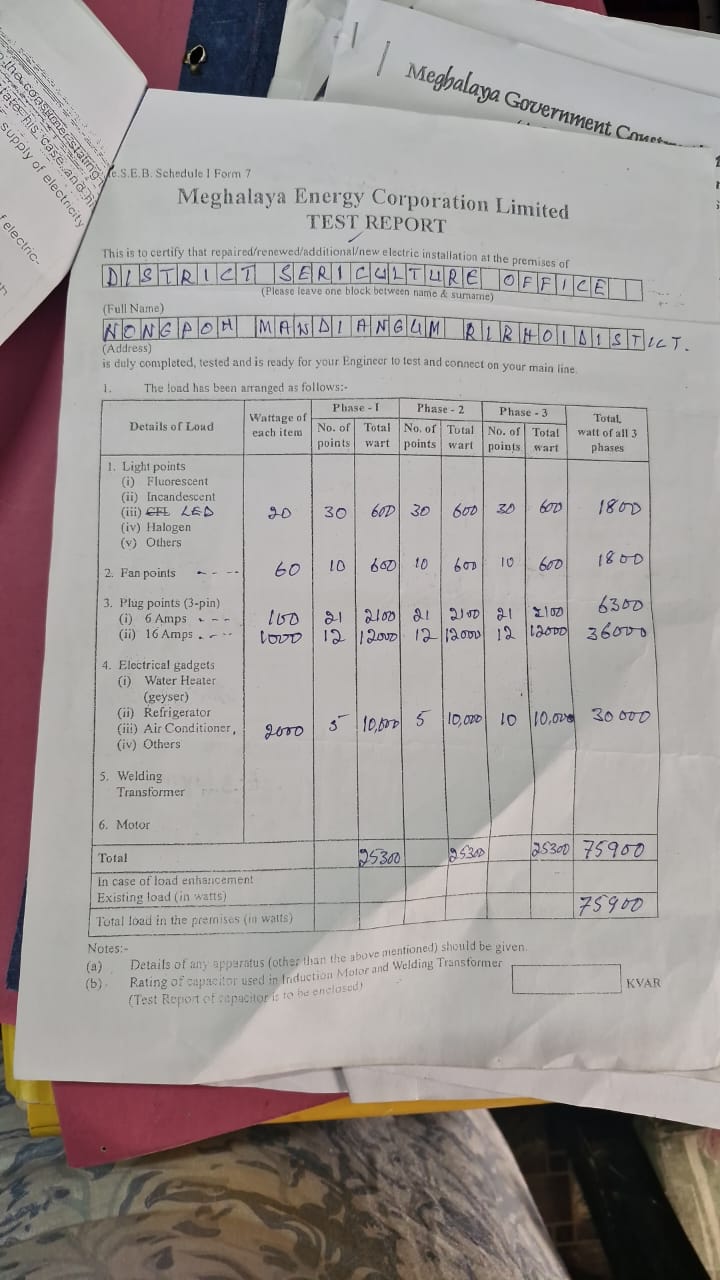 the consumer stating
state his case and hi
supply of electricity
f electric-
Meghalaya Government
e.S.E.B. Schedule I Form 7
Meghalaya Energy Corporation Limited
TEST REPORT
This is to certify that repaired/renewed/additional/new electric installation at the premises of
DISTRICT SERICULTURE OFFICE
(Please leave one block between name & surname)
(Full Name)
NONGPOH MANDIANGUM RIBHOI DISTRICT.
(Address)
is duly completed, tested and is ready for your Engineer to test and connect on your main line.
1. The load has been arranged as follows:-
Details of Load Wattage of each item Phase - 1 Phase - 2 Phase - 3 Total, watt of all 3 phases
No. of points Total wart No. of points Total wart No. of points Total wart
1. Light points
(i) Fluorescent
(ii) Incandescent
(iii) CFL LED 20 30 600 30 600 30 600 1800
(iv) Halogen
(v) Others
2. Fan points 60 10 600 10 600 10 600 1800
3. Plug points (3-pin)
(i) 6 Amps 100 21 2100 21 2100 21 2100 6300
(ii) 16 Amps 1000 12 12000 12 12000 12 12000 36000
4. Electrical gadgets
(i) Water Heater
(geyser)
(ii) Refrigerator
(iii) Air Conditioner, 2000 5 10,000 5 10,000 10 10,000 30000
(iv) Others
5. Welding
Transformer
6. Motor
Total 25300 25300 25300 75900
In case of load enhancement
Existing load (in watts)
75900
Total load in the premises (in watts)
Notes:-
(a) Details of any apparatus (other than the above mentioned) should be given.
(b) Rating of capacitor used in Induction Motor and Welding Transformer
(Test Report of capacitor is to be enclosed)
KVAR